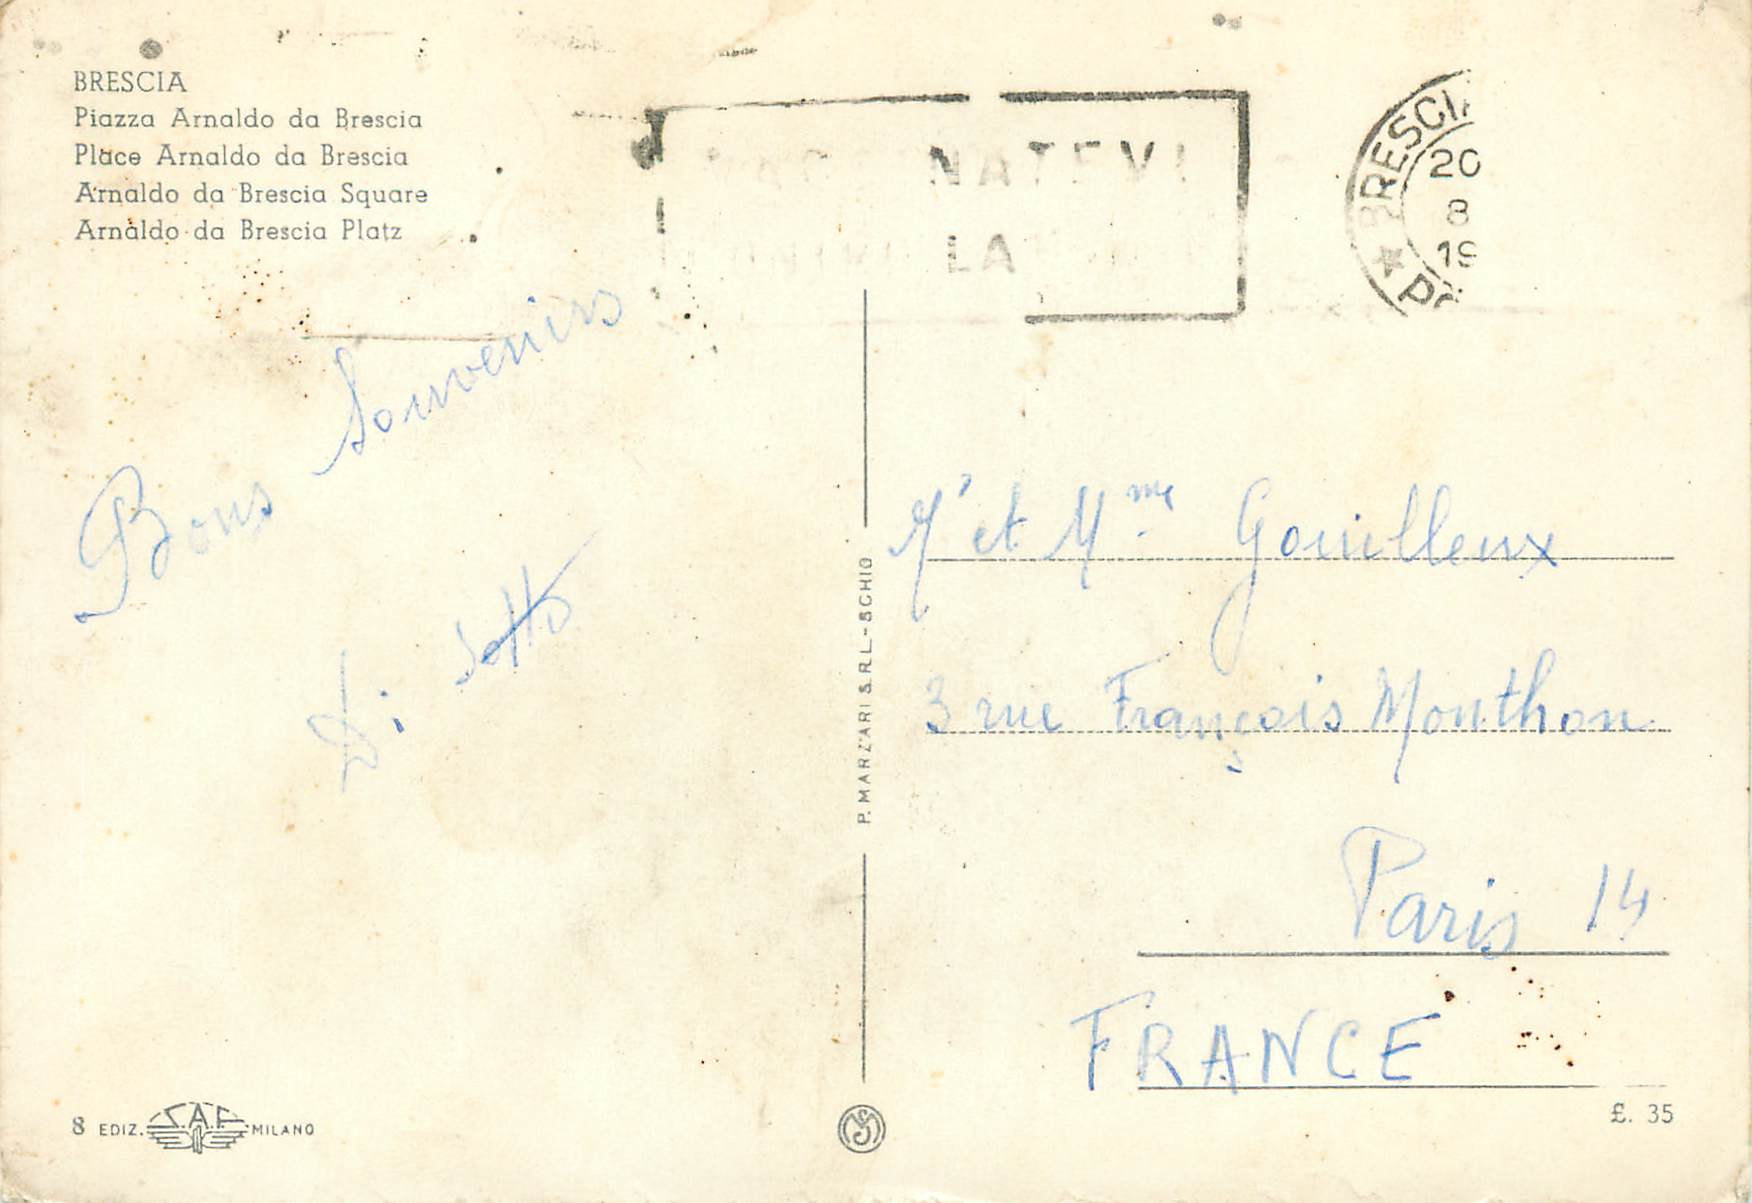 BRESCIA
Piazza Arnaldo da Brescia
Place Arnaldo da Brescia
Arnaldo da Brescia Square
Arnaldo da Brescia Platz
NATEVI
LA
BRESCIA
20
8
19
Bons Souvenirs
Di Sotto
P. MARZARI S.R.L.-SCHIO
Mr et Mme Gouilleux
3 rue François Monthon
Paris 14
FRANCE
8 EDIZ. S.A.F. MILANO
£. 35